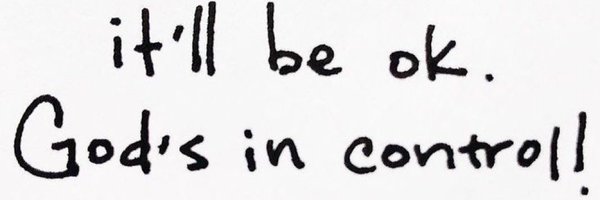 it'll be ok.
God's in control!